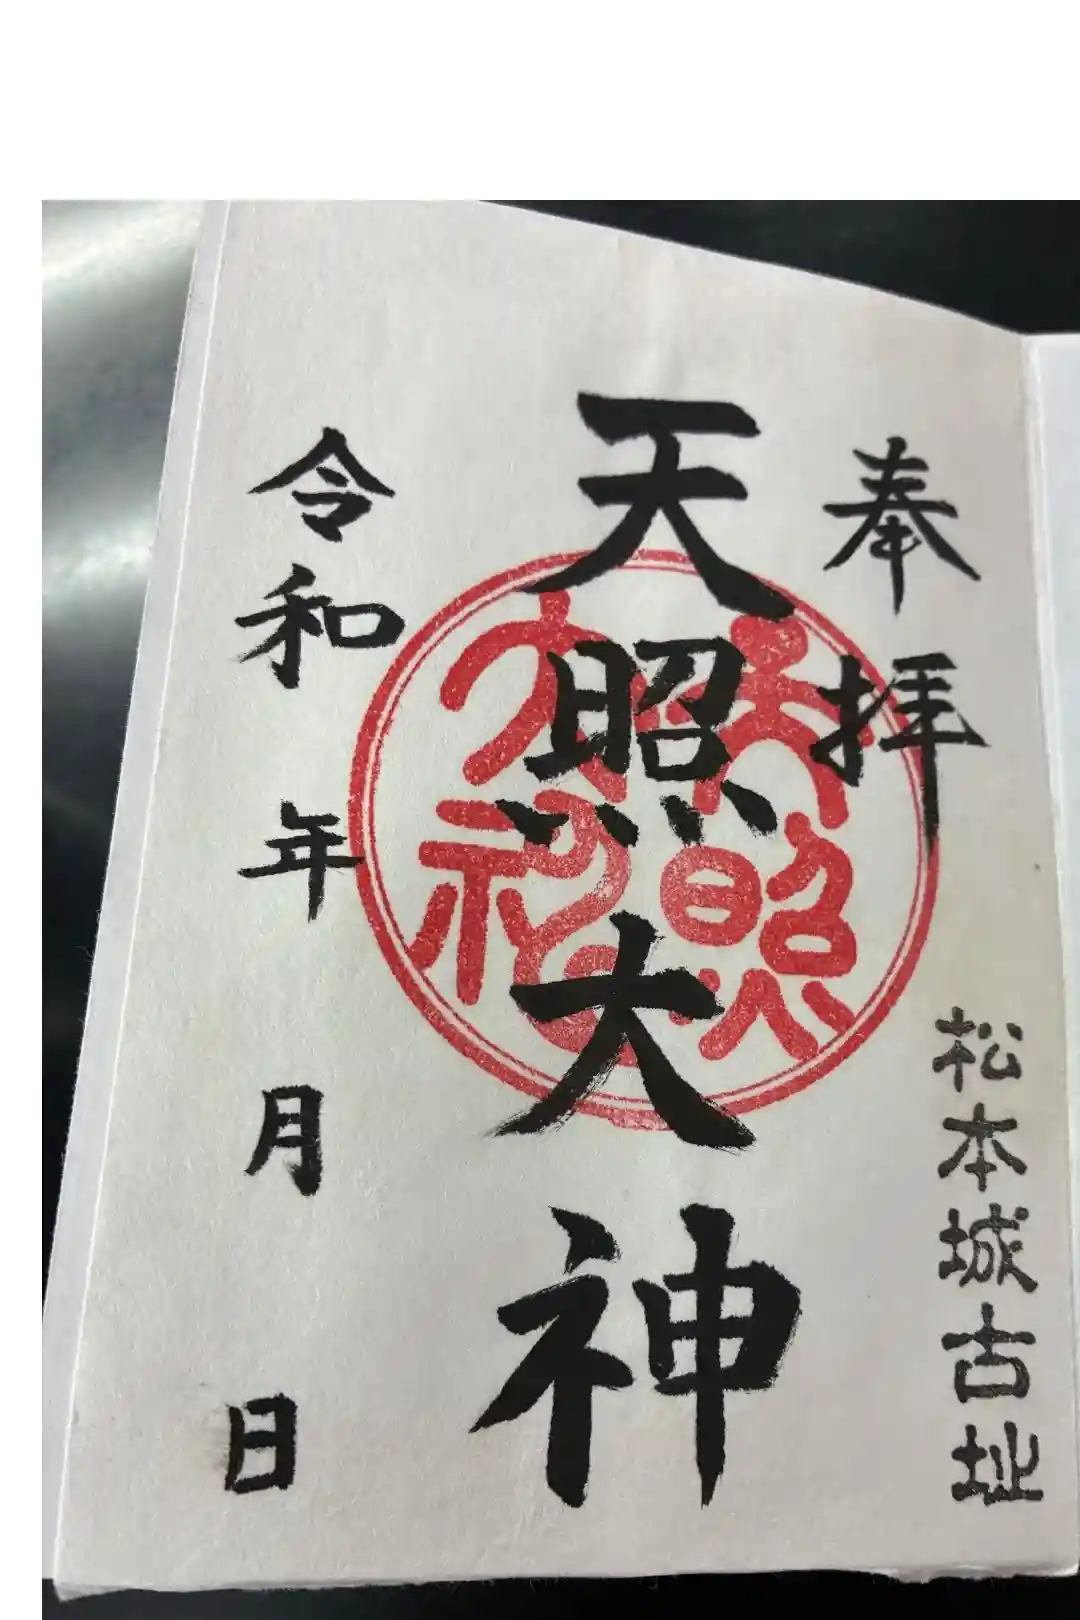 奉拝
松本城古址
天照大神
天照大神
令和 年 月 日